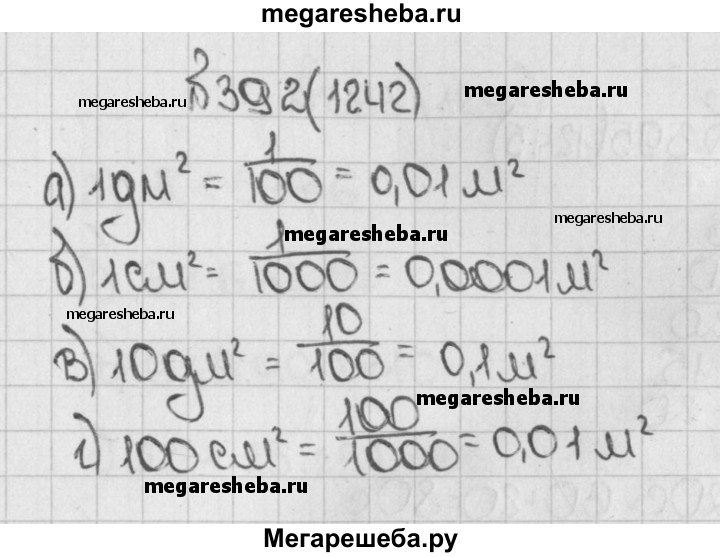 megaresheba.ru
№ 392(1242)
megaresheba.ru
megaresheba.ru
а) 1дм² = 1/100 = 0,01м²
megaresheba.ru
megaresheba.ru
б) 1см² = 1/1000 = 0,0001м²
megaresheba.ru
в) 10дм² = 10/100 = 0,1м²
megaresheba.ru
г) 100см² = 100/1000 = 0,01м²
megaresheba.ru
Мегарешеба.ру